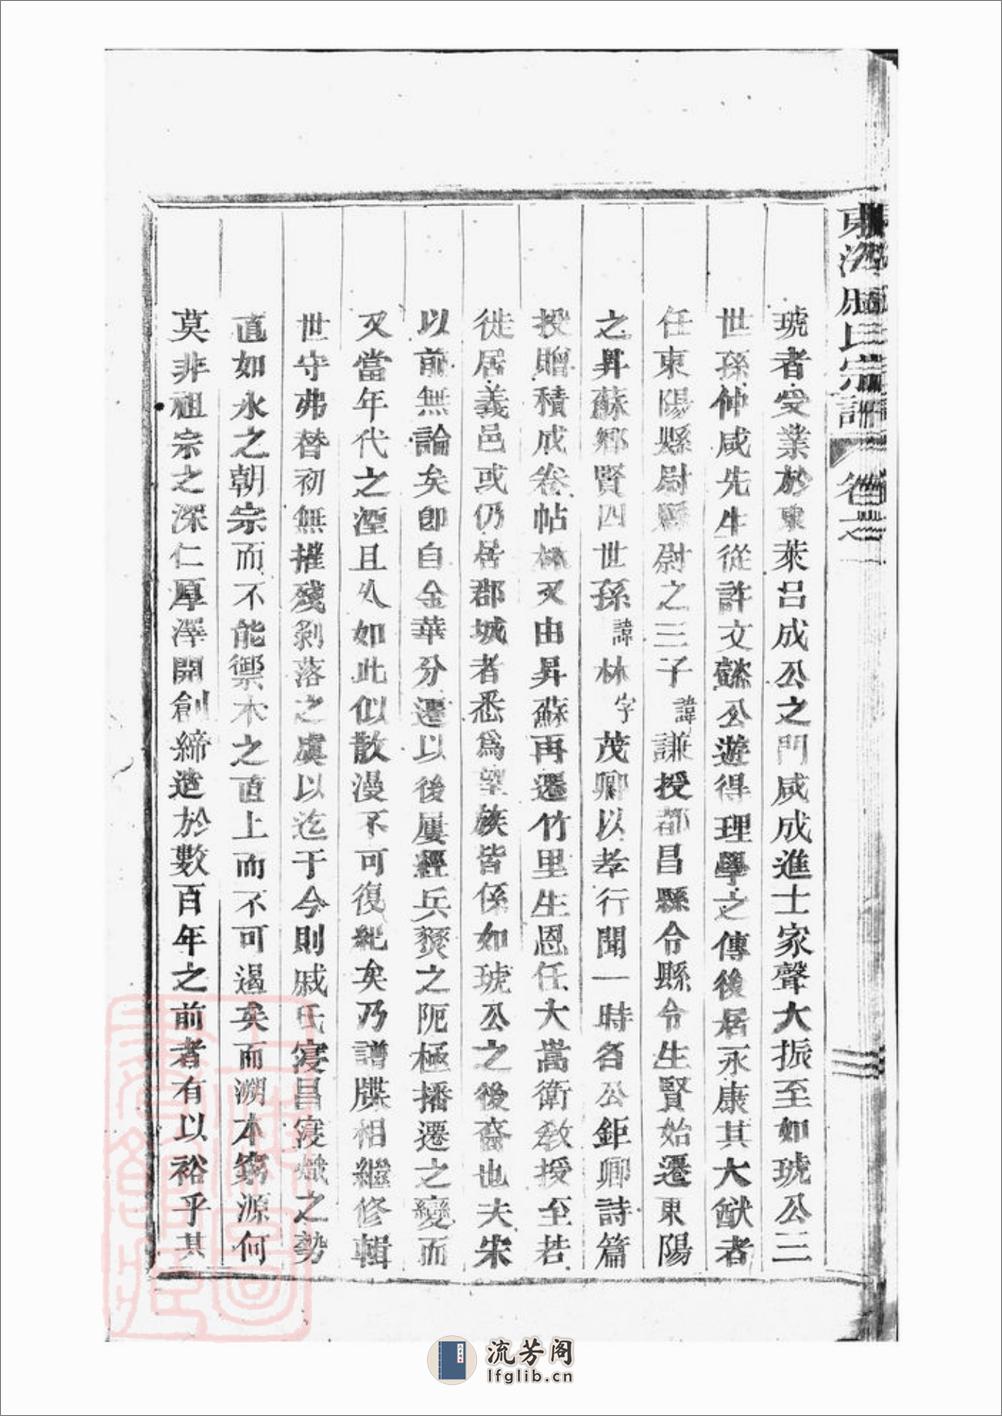 東海戚氏宗譜 卷之一
琥者受業於東萊呂成公之門咸成進士家聲大振至如琥公三
世孫仲咸先生從許文懿公遊得理學之傳後居永康其大猷者
任東陽縣尉縣尉之三子諱謙授都昌縣令縣令生賢始遷東陽
之昇蘇鄉賢四世孫諱林字茂卿以孝行聞一時名公鉅卿詩篇
投贈積成卷帖林又由昇蘇再遷竹里生恩任大嵩衛教授至若
徙居義邑或仍居郡城者悉爲望族皆係如琥公之後裔也夫宋
以前無論矣卽自金華分遷以後屢經兵燹之阨極播遷之變而
又當年代之湮且久如此似散漫不可復紀矣乃譜牒相繼修輯
世守弗替初無摧殘剝落之虞以迄于今則戚氏寖昌寖熾之勢
直如水之朝宗而不能禦木之直上而不可遏矣而溯本窮源何
莫非祖宗之深仁厚澤開創締造於數百年之前者有以裕乎其
流芳阁
lfglib.cn